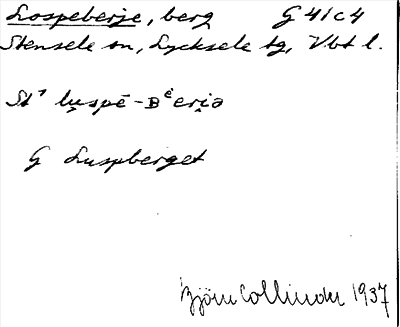 Lospeberje, berg G 41c4
Stensele sn, Lycksele tg, Vbt l.
St¹ lu̬spē-Bᵉeri̯ə
G Luspberget
Björn Collinder 1937